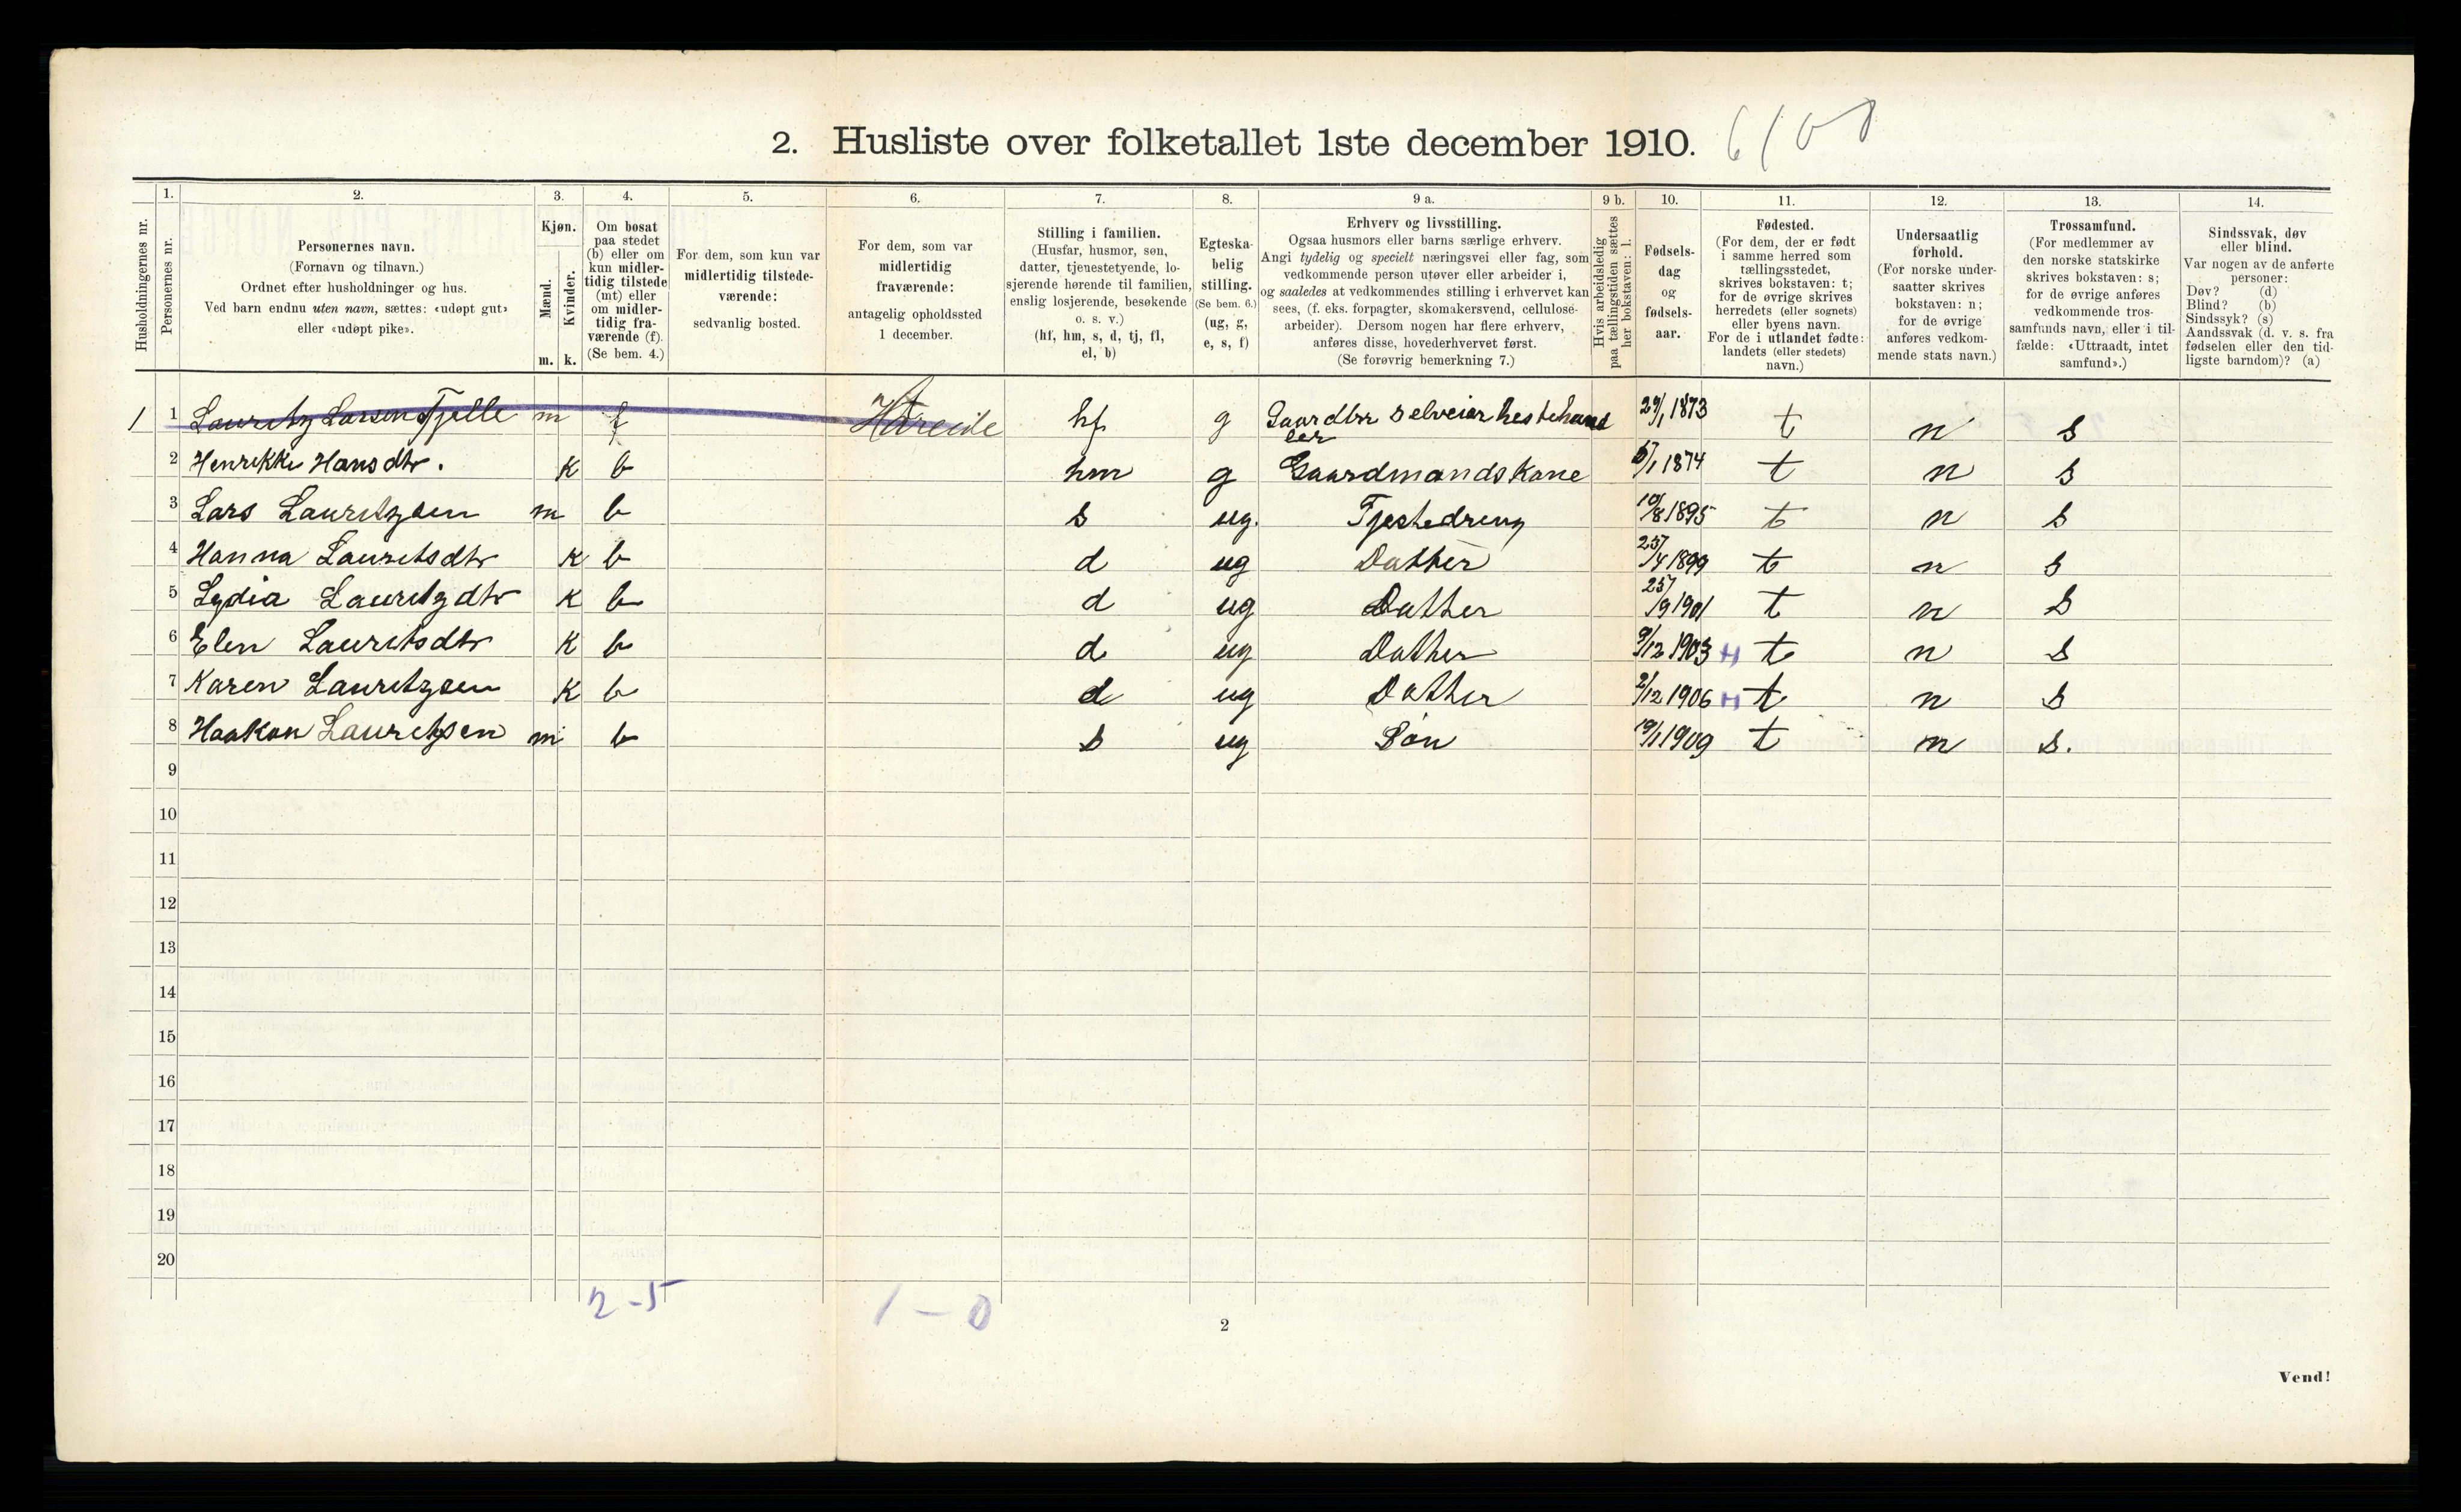 2. Husliste over folketallet 1ste december 1910.
Husholdningernes nr.
1.
Personernes nr.
2.
Personernes navn.
(Fornavn og tilnavn.)
Ordnet efter husholdninger og hus.
Ved barn endnu uten navn, sættes: «udøpt gut»
eller «udøpt pike».
3.
Kjøn.
Mænd.
Kvinder.
m. k.
4.
Om bosat
paa stedet
(b) eller om
kun midler-
tidig tilstede
(mt) eller
om midler-
tidig fra-
værende (f).
(Se bem. 4.)
5.
For dem, som kun var
midlertidig tilstede-
værende:
sedvanlig bosted.
6.
For dem, som var
midlertidig
fraværende:
antagelig opholdssted
1 december.
7.
Stilling i familien.
(Husfar, husmor, søn,
datter, tjenestetyende, lo-
sjerende hørende til familien,
enslig losjerende, besøkende
o. s. v.)
(hf, hm, s, d, tj, fl,
el, b)
8.
Egteska-
belig
stilling.
(Se bem. 6.)
(ug, g,
e, s, f)
9 a.
Erhverv og livsstilling.
Ogsaa husmors eller barns særlige erhverv.
Angi tydelig og specielt næringsvei eller fag, som
vedkommende person utøver eller arbeider i,
og saaledes at vedkommendes stilling i erhvervet kan
sees, (f. eks. forpagter, skomakersvend, cellulose-
arbeider). Dersom nogen har flere erhverv,
anføres disse, hovederhvervet først.
(Se forøvrig bemerkning 7.)
9 b.
Hvis arbeidsledig
paa tællingstiden sættes
her bokstaven: l.
10.
Fødsels-
dag
og
fødsels-
aar.
11.
Fødested.
(For dem, der er født
i samme herred som
tællingsstedet,
skrives bokstaven: t;
for de øvrige skrives
herredets (eller sognets)
eller byens navn.
For de i utlandet fødte:
landets (eller stedets)
navn.)
12.
Undersaatlig
forhold.
(For norske under-
saatter skrives
bokstaven: n;
for de øvrige
anføres vedkom-
mende stats navn.)
13.
Trossamfund.
(For medlemmer av
den norske statskirke
skrives bokstaven: s;
for de øvrige anføres
vedkommende tros-
samfunds navn, eller i til-
fælde: «Uttraadt, intet
samfund».)
14.
Sindssvak, døv
eller blind.
Var nogen av de anførte
personer:
Døv? (d)
Blind? (b)
Sindssyk? (s)
Aandssvak (d. v. s. fra
fødselen eller den tid-
ligste barndom)? (a)
1 1 Lauritz Larsen Tjelle m f Hareide hf g Gaardbr selveier hestehand
ler 29/1 1873 t n s
2 Henrikke Hansdtr. k b hm g Gaardmandskone 5/1 1874 t n s
3 Lars Lauritzsen m b s ug. Tjestedreng 10/8 1895 t n s
4 Hanna Lauritsdtr k b d ug Datter 25/4 1899 t n s
5 Lydia Lauritzdtr k b d ug Datter 25/9 1901 t n s
6 Elen Lauritsdtr k b d ug Datter 9/12 1903 H t n s
7 Karen Lauritzsen k b d ug Datter 2/12 1906 H t n s
8 Haakon Lauritzsen m b s ug Søn 19/1 1909 t n s.
9
10
11
12
13
14
15
16
17
18
19
20
2-5 1-0
2
Vend!